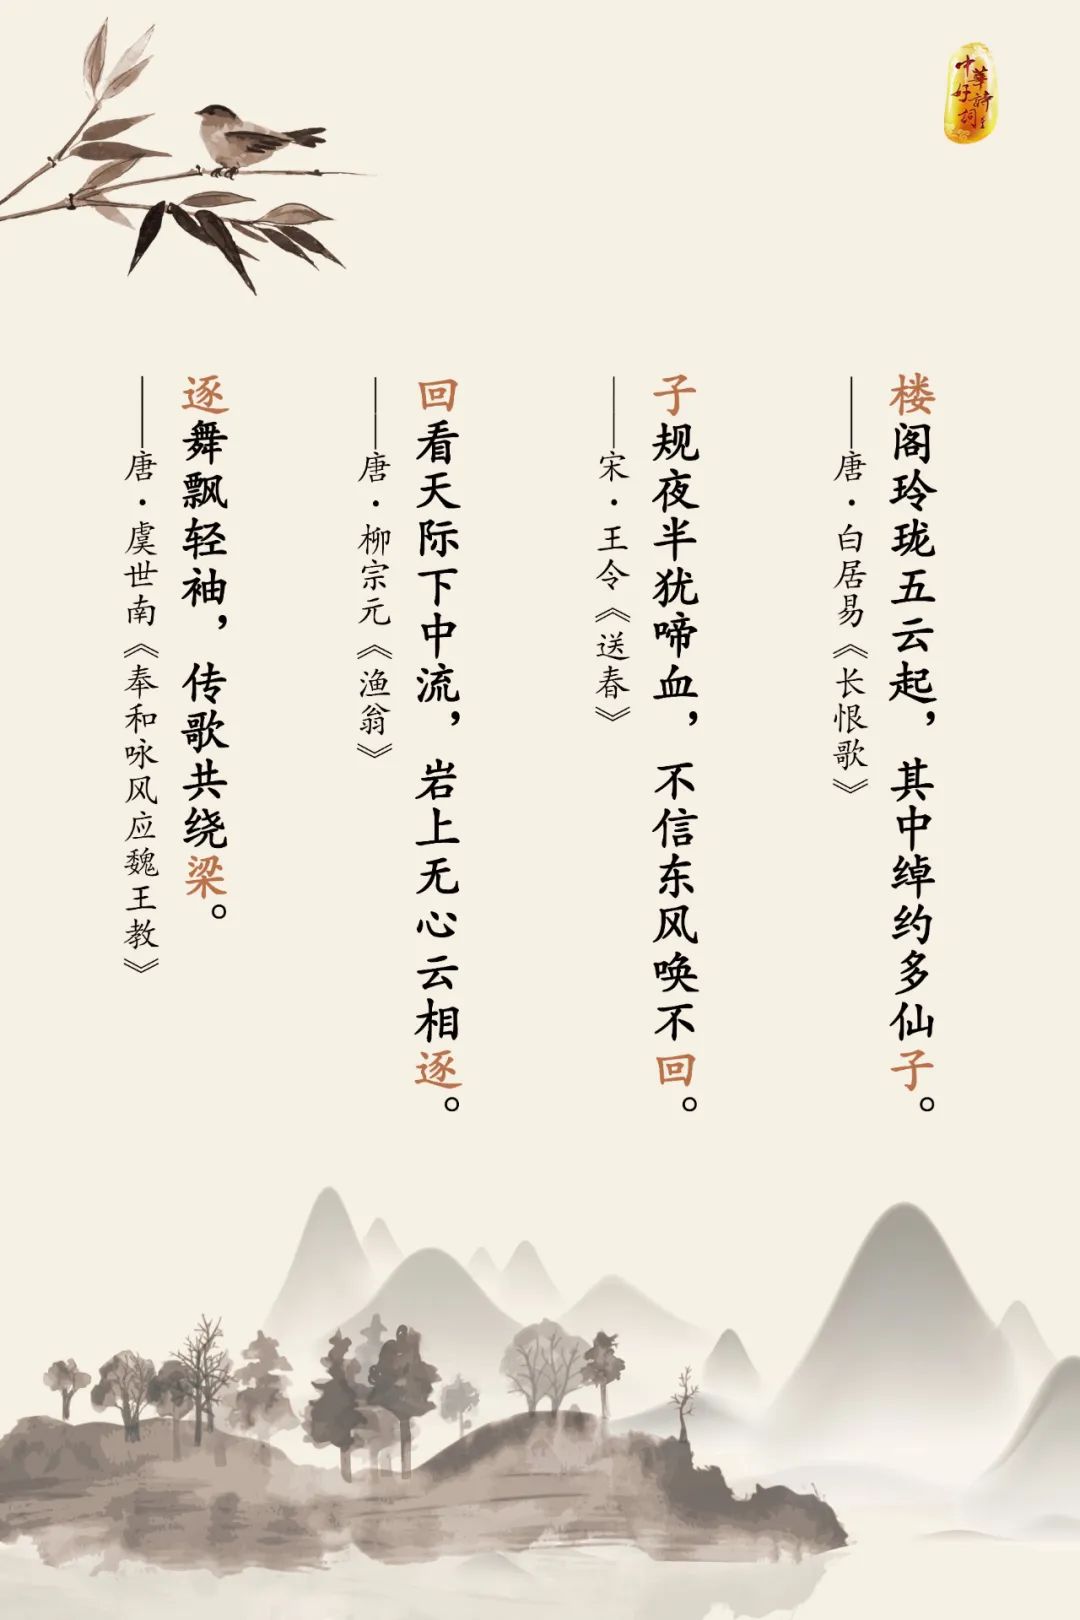 中華好詩詞
楼阁玲珑五云起，其中绰约多仙子。
——唐·白居易《长恨歌》
子规夜半犹啼血，不信东风唤不回。
——宋·王令《送春》
回看天际下中流，岩上无心云相逐。
——唐·柳宗元《渔翁》
逐舞飘轻袖，传歌共绕梁。
——唐·虞世南《奉和咏风应魏王教》